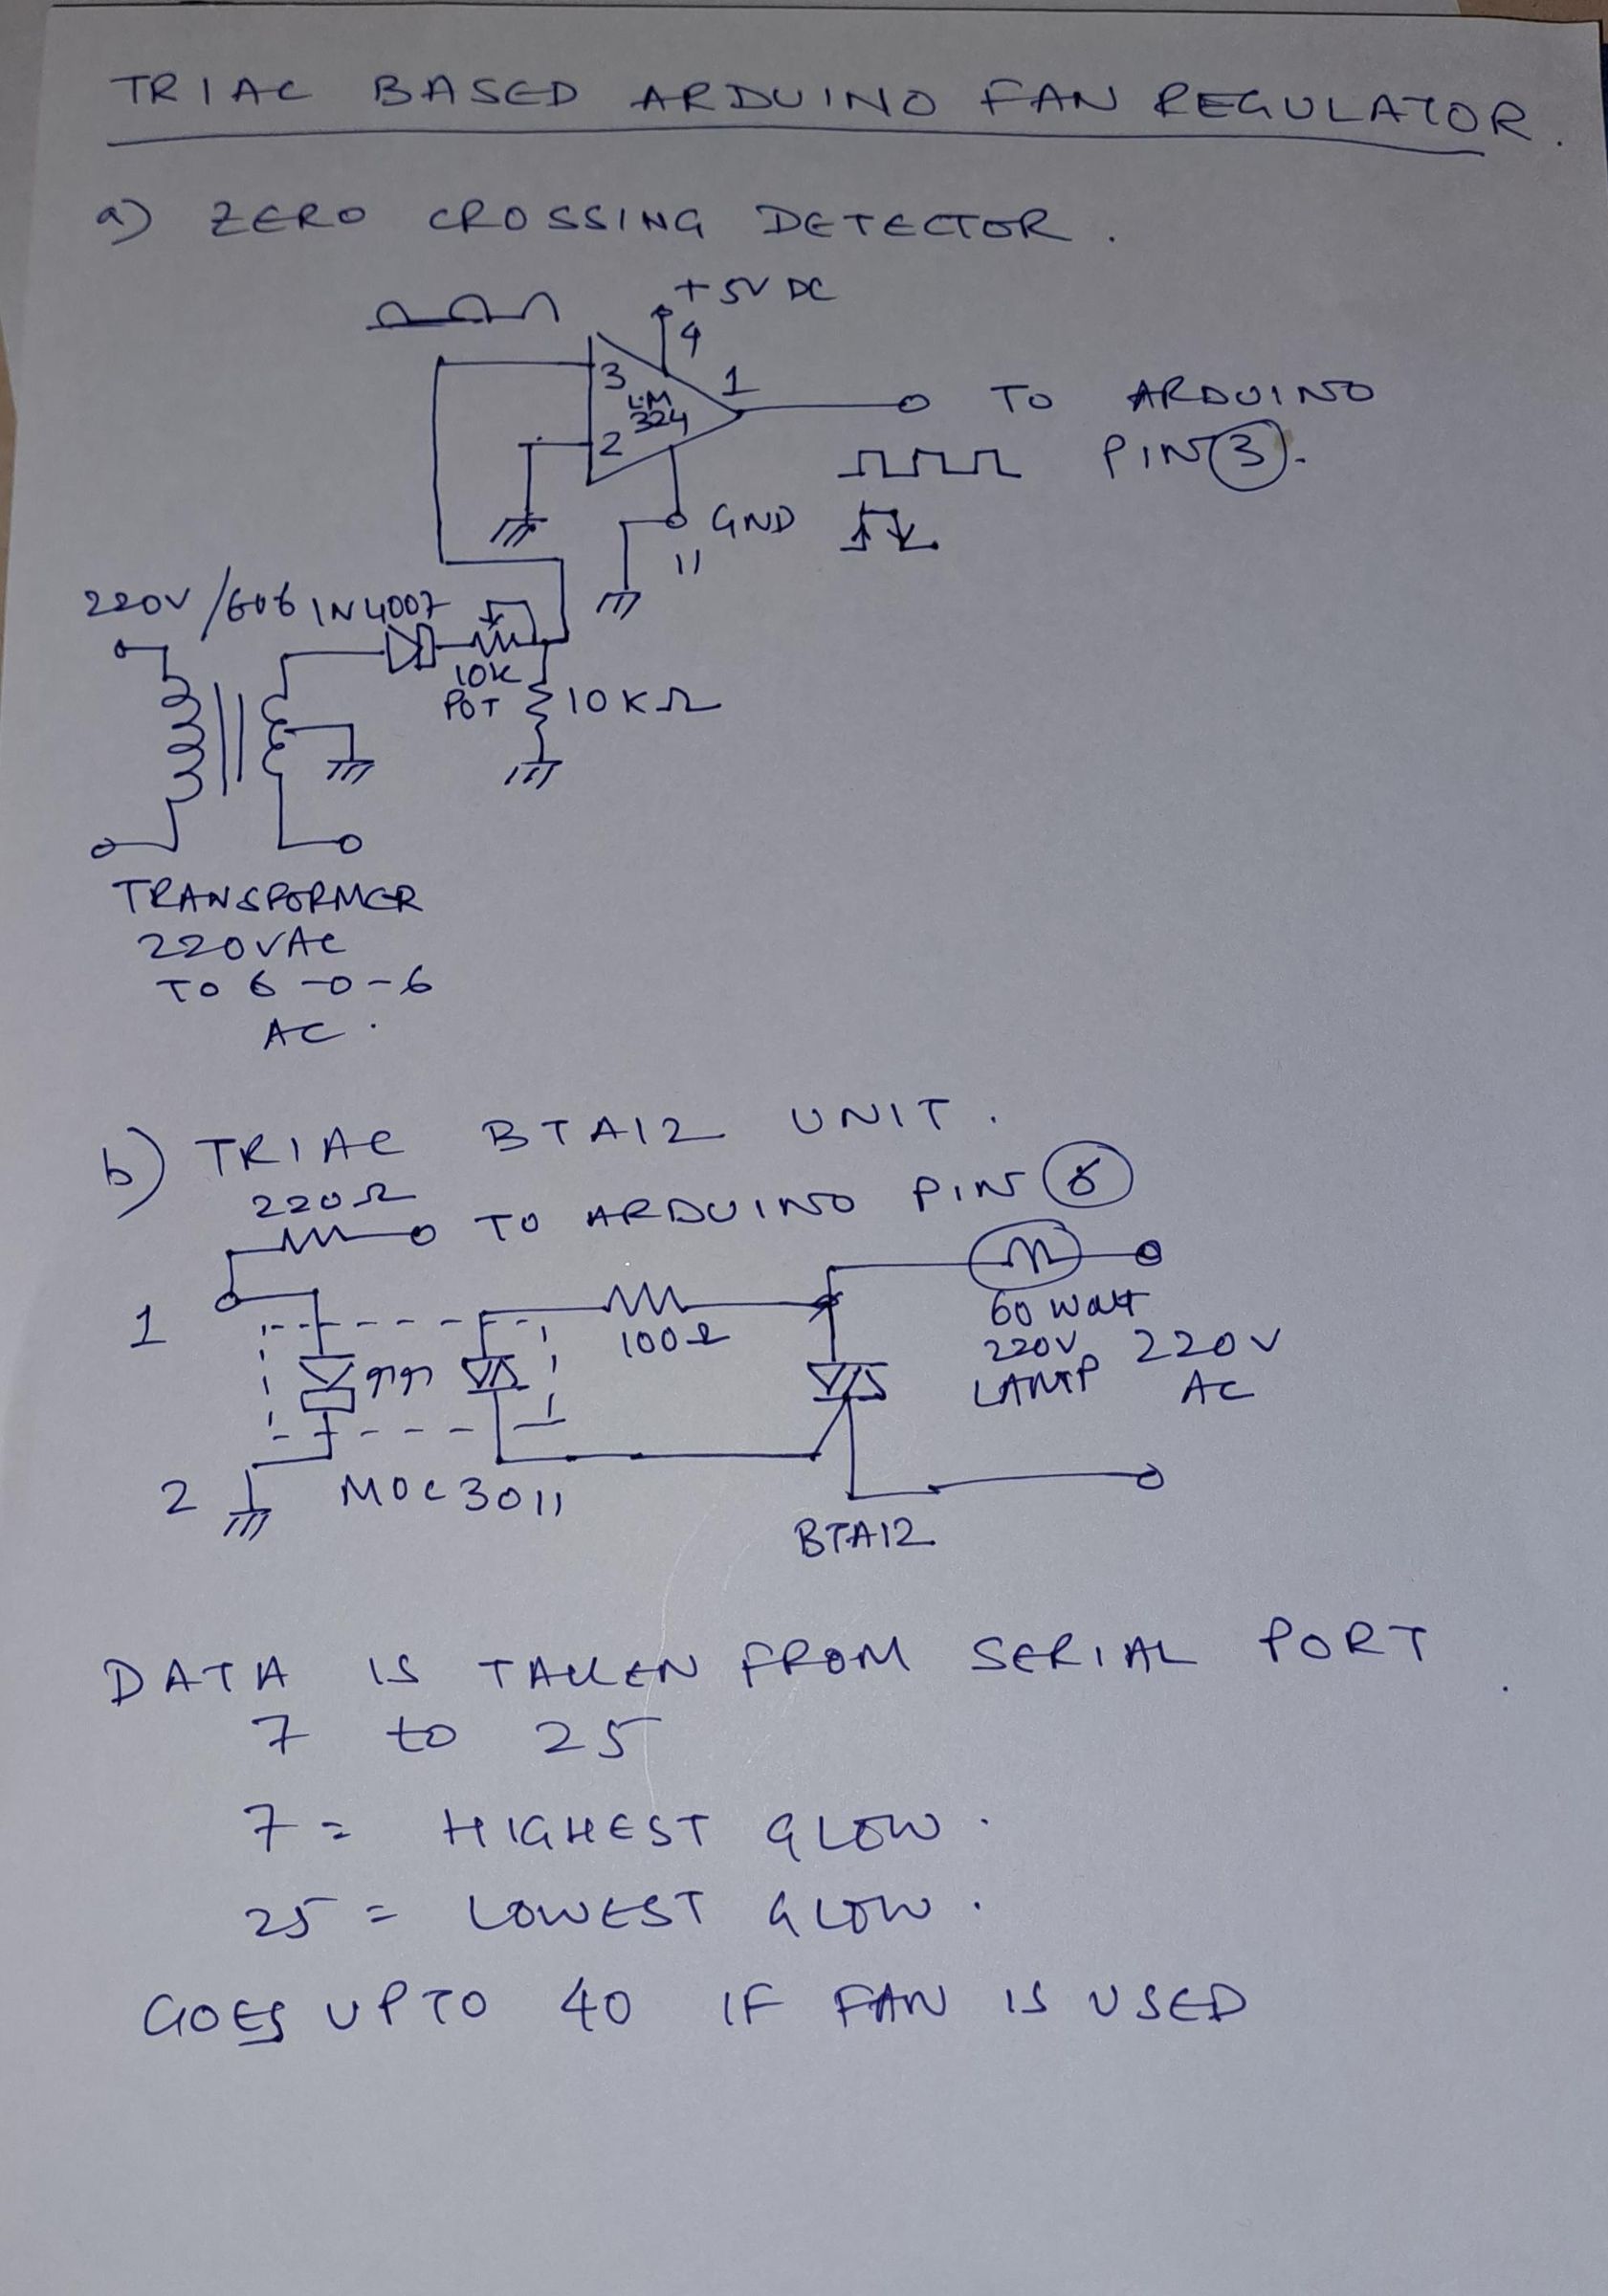 TRIAC BASED ARDUINO FAN REGULATOR.
a) ZERO CROSSING DETECTOR.
+5V DC
4
3
LM
324
1
2
TO ARDUINO
PIN 3.
GND
11
220V/606 IN4007
10K
POT
10KΩ
TRANSFORMER
220VAC
TO 6-0-6
AC.
b) TRIAC BTA12 UNIT.
220Ω
TO ARDUINO PIN
1
100Ω
60 Watt
220V
LAMP
220V
AC
2
MOC3011
BTA12
DATA IS TAKEN FROM SERIAL PORT.
7 to 25
7 = HIGHEST GLOW.
25 = LOWEST GLOW.
GOES UPTO 40 IF FAN IS USED